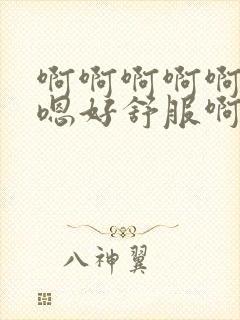 啊啊啊啊啊
嗯好舒服啊
八神翼